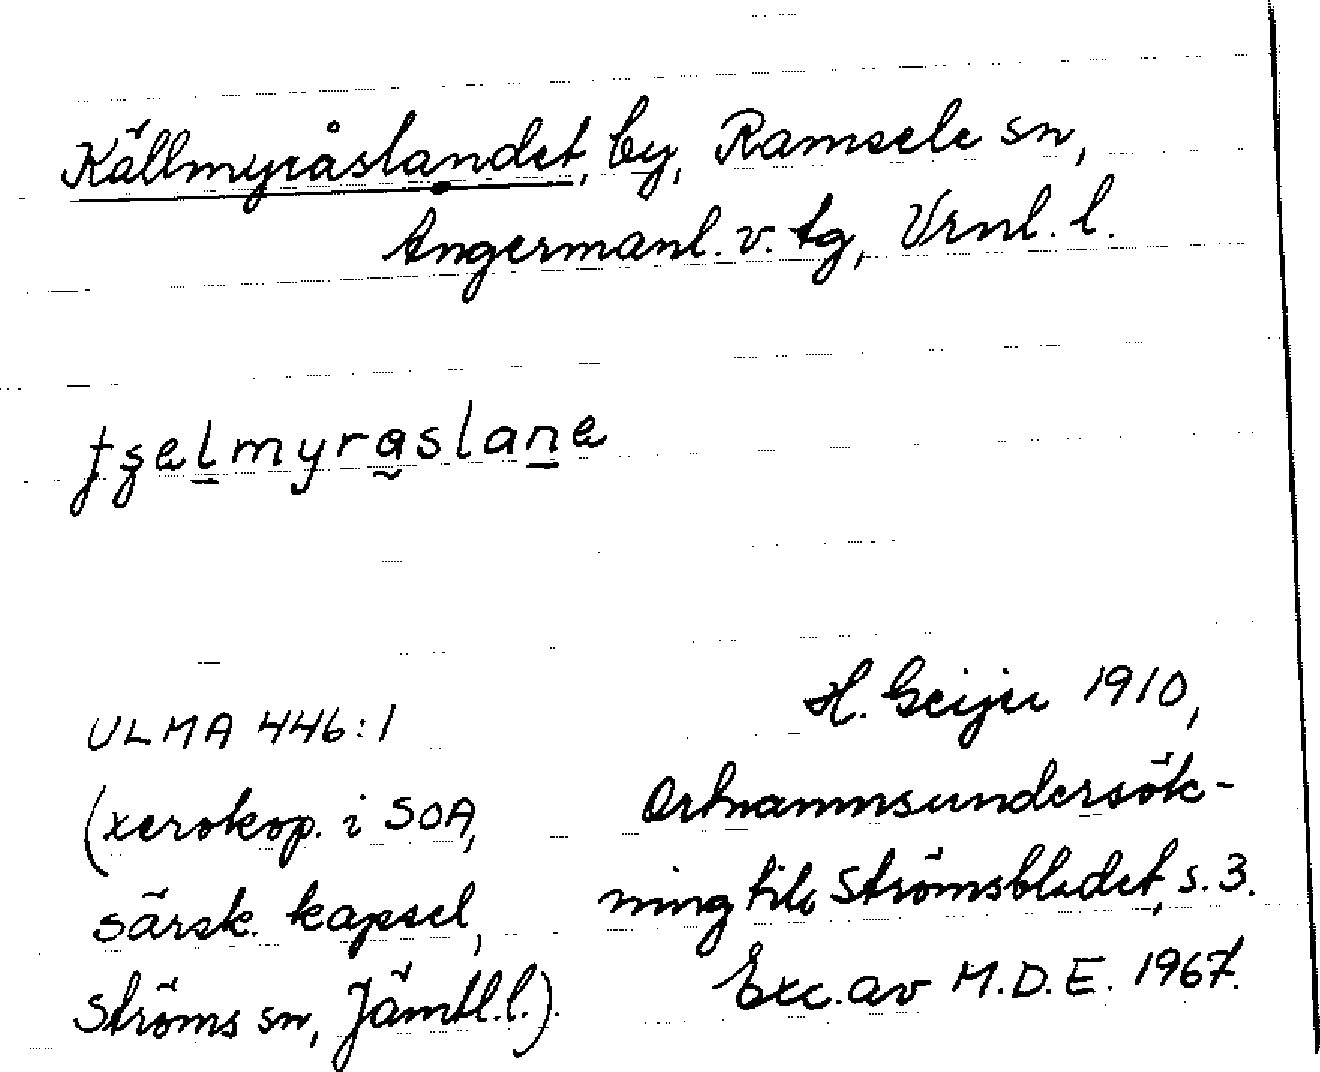 Källmyråslandet, by, Ramsele sn,
Ångermanl. v. tg, Vrnl. l.
tʂelmyraslane
ULMA 446:1
(xerokop. i SOA,
särsk. kapsel,
Ströms sn, Jämtl.l.).
H. Geijer 1910,
Ortnamnsundersök-
ning till Strömsbladet, s. 3.
Exc. av M.D.E. 1967.